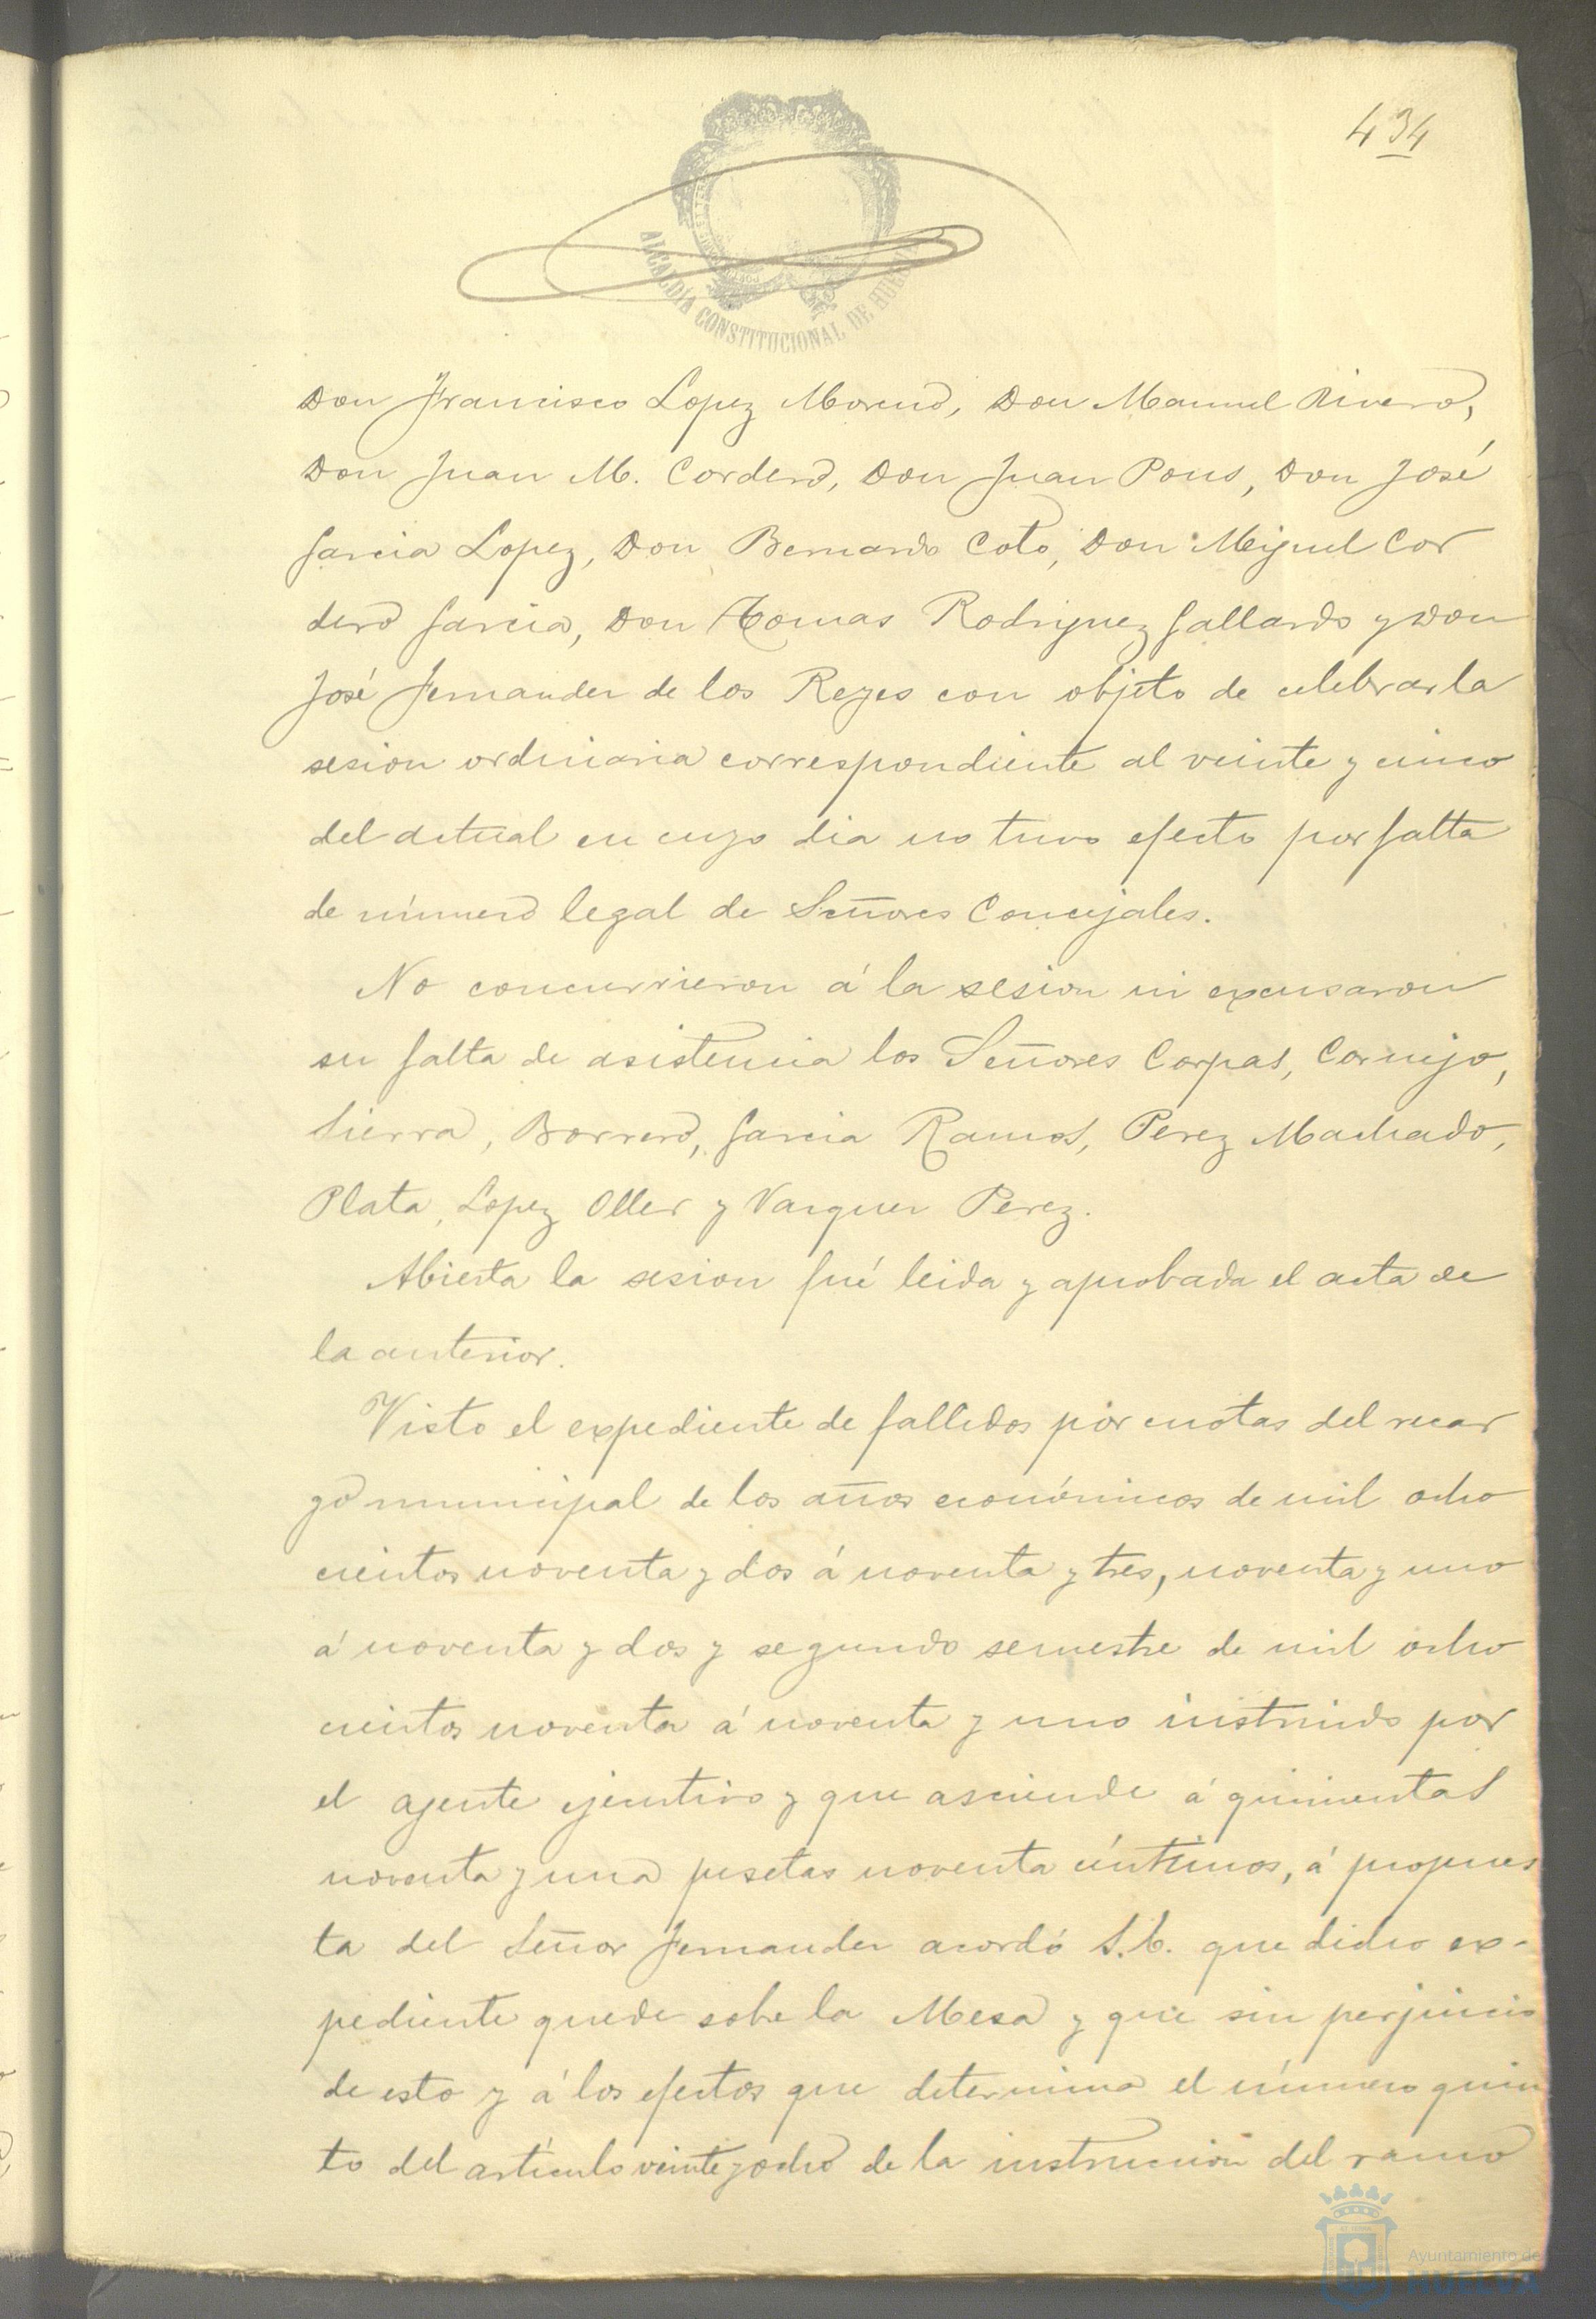 434
ALCALDÍA CONSTITUCIONAL DE HUELVA
Don Francisco Lopez Moreno, Don Manuel Rivero,
Don Juan M. Cordero, Don Juan Pons, Don José
Garcia Lopez, Don Bernardo Coto, Don Miguel Cor
dero Garcia, Don Tomas Rodriguez Gallardo y Don
José Fernandez de los Reyes con objeto de celebrar la
sesion ordinaria correspondiente al veinte y cinco
del actual en cuyo dia no tuvo efecto por falta
de número legal de Señores Concejales.
No concurrieron á la sesion ni excusaron
su falta de asistencia los Señores Corpas, Cornejo,
Sierra, Borrero, Garcia Ramos, Perez Machado,
Plata, Lopez Oller y Vazquez Perez.
Abierta la sesion fué leida y aprobada el acta de
la anterior.
Visto el expediente de fallidos por cuotas del recar
go municipal de los años económicos de mil ocho
cientos noventa y dos á noventa y tres, noventa y uno
á noventa y dos y segundo semestre de mil ocho
cientos noventa á noventa y uno instruido por
el agente ejecutivo y que asciende á quinientas
noventa y una pesetas noventa céntimos, á propues
ta del Señor Fernandez acordó S.E. que dicho ex-
pediente quede sobre la Mesa y que sin perjuicio
de esto y á los efectos que determina el número quin
to del artículo veinte y ocho de la instruccion del ramo
Ayuntamiento de
HUELVA